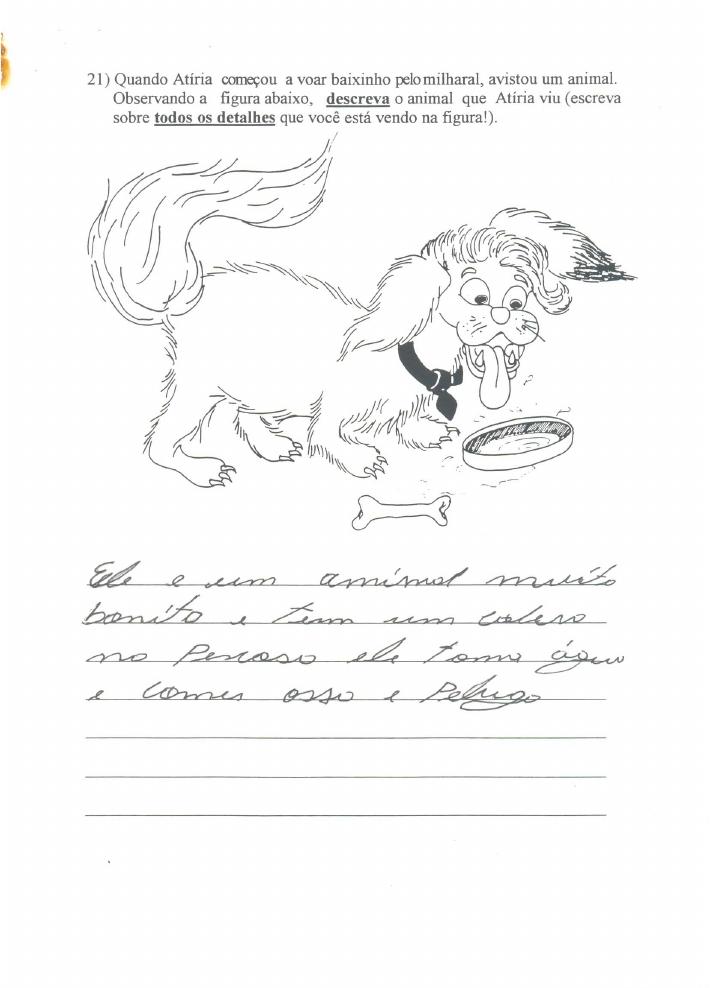 21) Quando Atíria começou a voar baixinho pelo milharal, avistou um animal.
Observando a figura abaixo, descreva o animal que Atíria viu (escreva
sobre todos os detalhes que você está vendo na figura!).
Ele e um animal muito
bonito e tem um colero
no Pescoso ele toma água
e comes osso e Pelugo